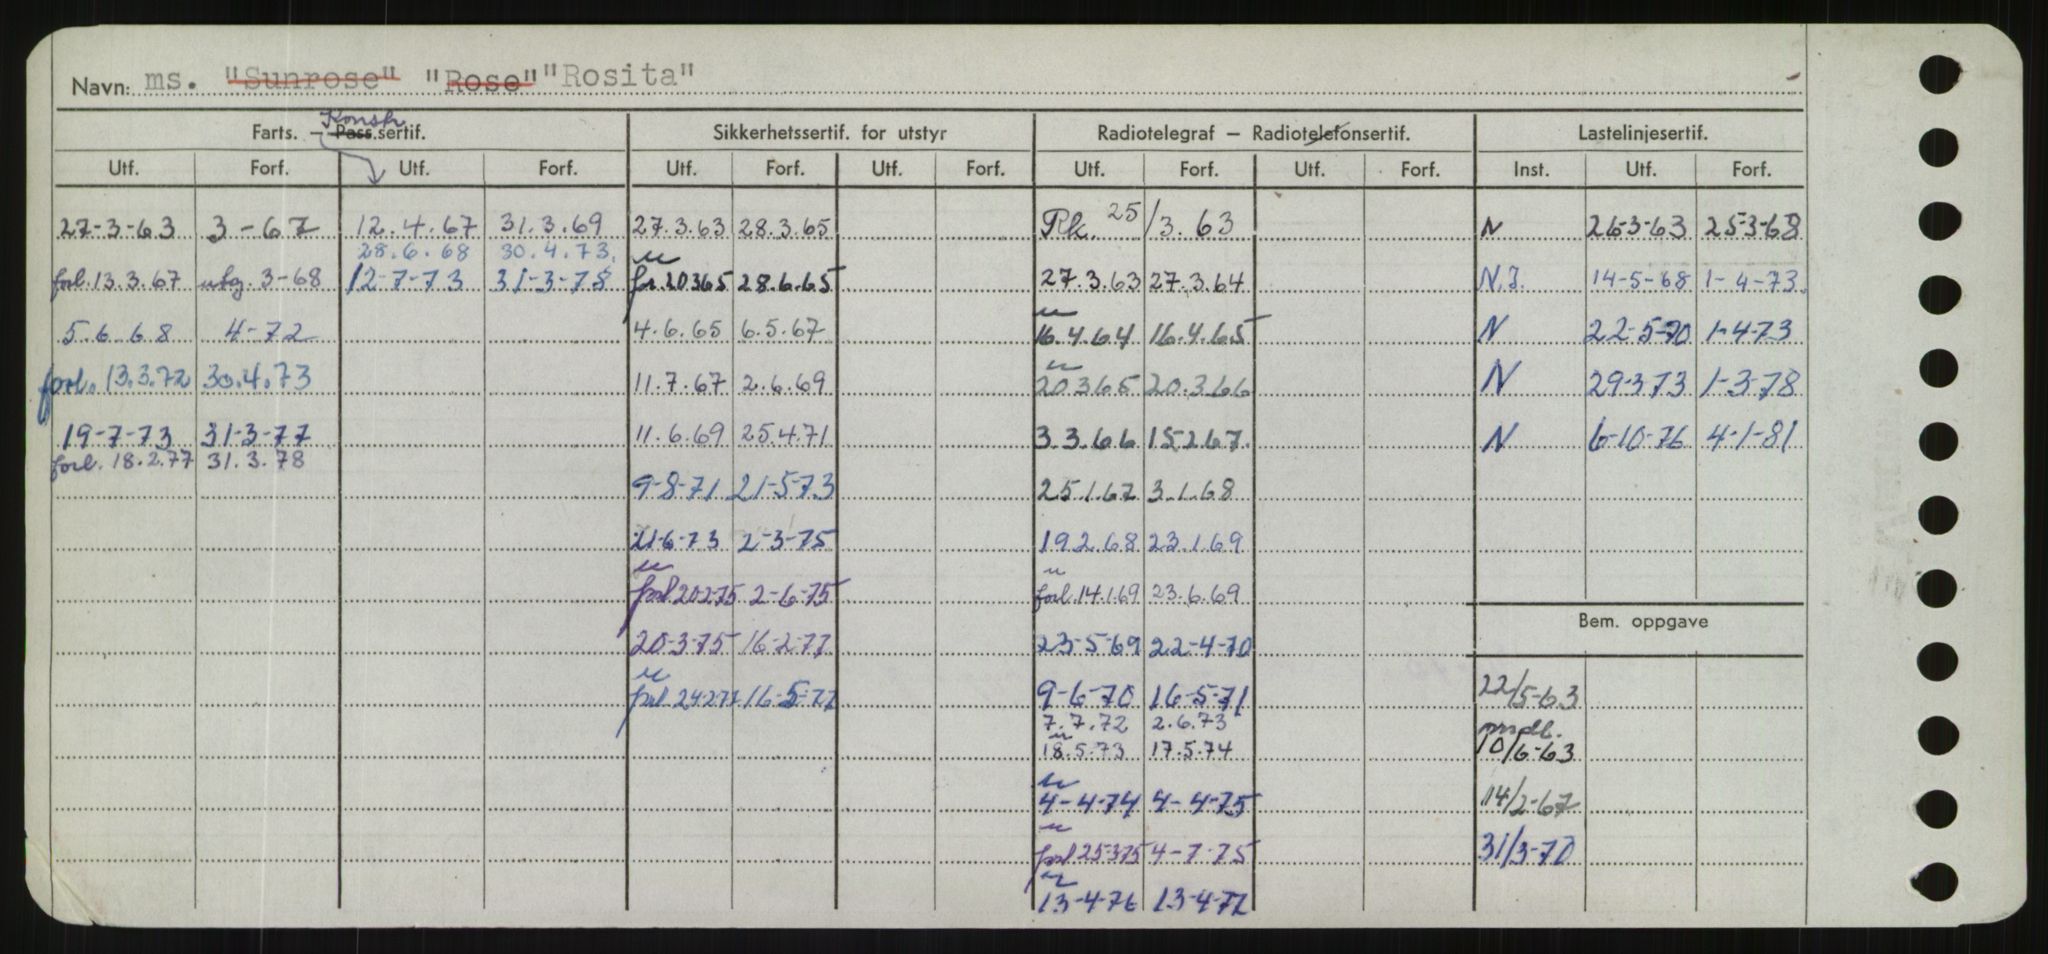 Navn: ms. "Sunrose" "Rose" "Rosita"
Konstr.
Farts. – Pass.sertif. Sikkerhetssertif. for utstyr Radiotelegraf – Radiotelefonsertif. Lastelinjesertif.
Utf. Forf. Utf. Forf. Utf. Forf. Utf. Forf. Utf. Forf. Utf. Forf. Inst. Utf. Forf.
27-3-63 3-67 12.4.67 31.3.69 27.3.63 28.3.65 Rk. 25/3.63 N 26-3-63 25-3-68
28.6.68 30.4.73.
forl. 13.3.67 utg. 3-68 12-7-73 31-3-78 u 20365 28.6.65 27.3.63 27.3.64 N.I. 14-5-68 1-4-73.
5.6.68 4-72 4.6.65 6.5.67 u 16.4.64 16.4.65 N 22-5-70 1-4-73
forl. 13.3.72 30.4.73 11.7.67 2.6.69 u 20365 20.3.66 N 29-3-73 1-3-78
19-7-73 31-3-77 11.6.69 25.4.71 3.3.66 15.2.67. N 6-10-76 4-1-81
forl. 18.2.77 31.3.78
9-8-71 21-5-73 25.1.67 3.1.68
21-6-73 2-3-75 19.2.68 23.1.69
u forl 20275 2-6-75 u forl. 14.1.69 23.6.69
Bem. oppgave
20-3-75 16-2-77 23-5-69 22-4-70
u forl 24-2-77 16-5-77 9-6-70 16-5-71 22/5-63
7.7.72 2.6.73
u 18.5.73 17.5.74 10/6-63
u 4-4-74 4-4-75 14/2-67
u forl 25375 4-7-75 31/3-70
u 13-4-76 13-4-77